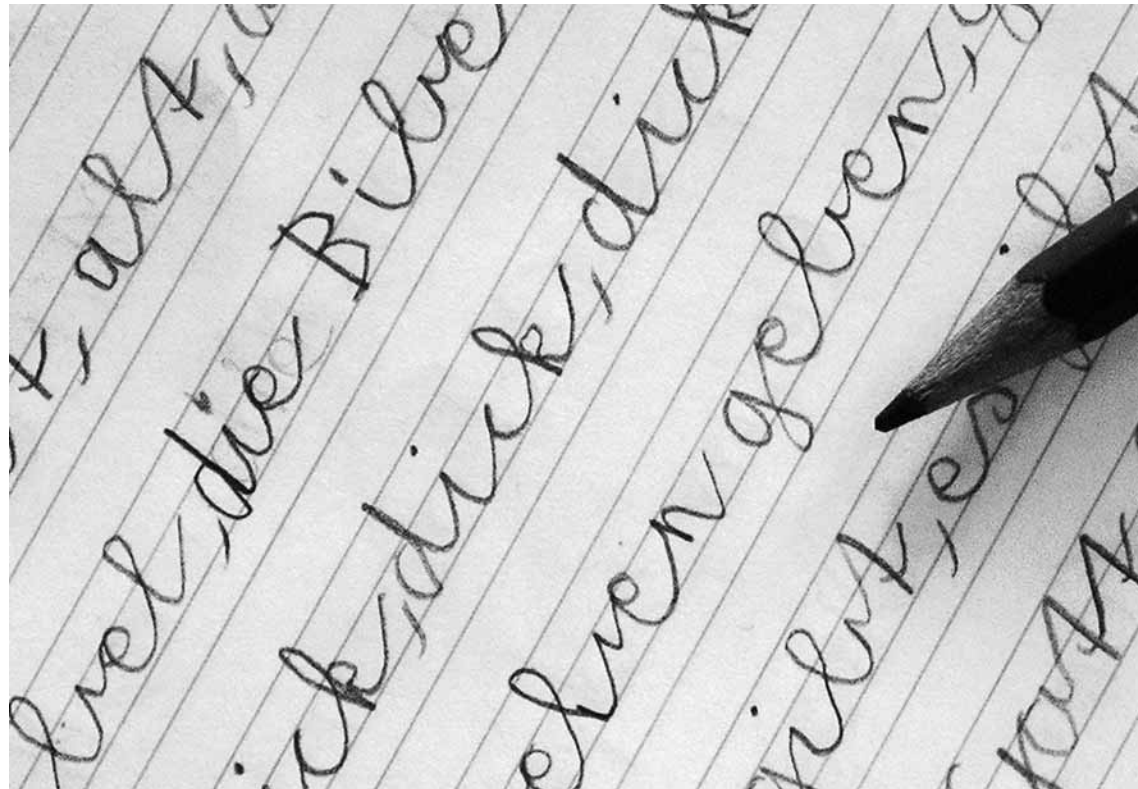 t, alt, a
bel, die Bibe
ick, dick, dick
eben geben, g
gibt, es gibt